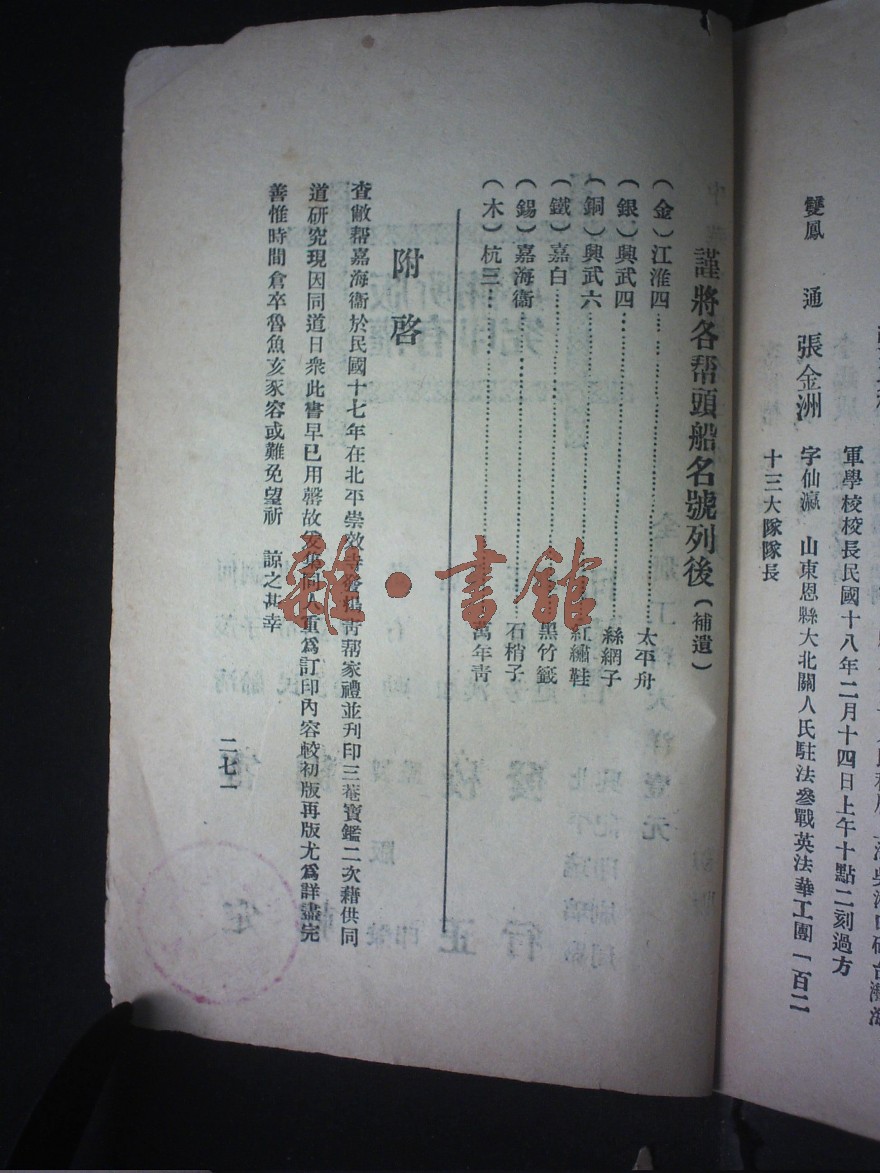 軍學校校長民國十八年二月十四日上午十點二刻過方
雙鳳 通 張金洲 字仙瀛 山東恩縣大北關人氏駐法參戰英法華工團一百二
十三大隊隊長
謹將各帮頭船名號列後(補遺)
(金)江淮四……太平舟
(銀)興武四……絲網子
(銅)興武六……紅繡鞋
(鐵)嘉白……黑竹籤
(錫)嘉海衞……石梢子
(木)杭三……萬年靑
附啓
查敝帮嘉海衞於民國十七年在北平崇效寺靑帮家禮並刋印三菴寶鑑二次藉供同
道研究現因同道日衆此書早已用罄故同人重爲訂印內容較初版再版尤爲詳盡完
善惟時間倉卒魯魚亥豕容或難免望祈 諒之甚幸
二七一
雜·書館